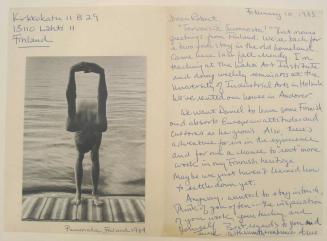 Kirkkokatu 11 B 29
15110 Lahti 11
Finland
Finland 1984
February 10, 1985
Dear Robert
"Terveisiä Suomesta" That means
greetings from Finland. We're back for
a two year stay in the old homeland.
Came here late fall already. I'm
teaching at the Lahti Art Institute
and doing weekly seminars at the
University of Industrial Arts in Helsinki
We've rented our house in Andover
We want Daniel to learn some Finnish
and absorb European attitudes and
customs as he grows. Also, there's
adventure for us in the experience
and for me a chance to root more
work in my Finnish heritage
Maybe we just haven't learned how
to settle down yet.
Anyway, wanted to stay in touch,
Think of you often - the inspiration
of your work, your teaching and
yourself. Best regards to you and